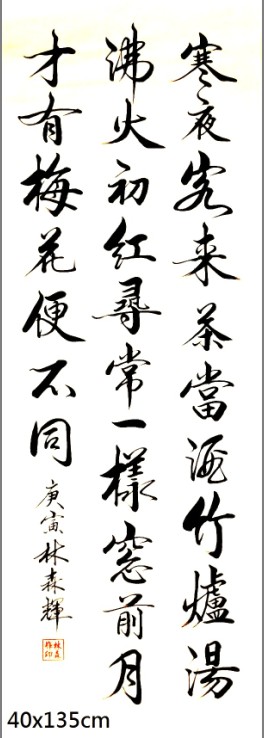 寒夜客来茶當酒竹爐湯
沸火初紅尋常一樣窓前月
才有梅花便不同
庚寅林森輝
40x135cm